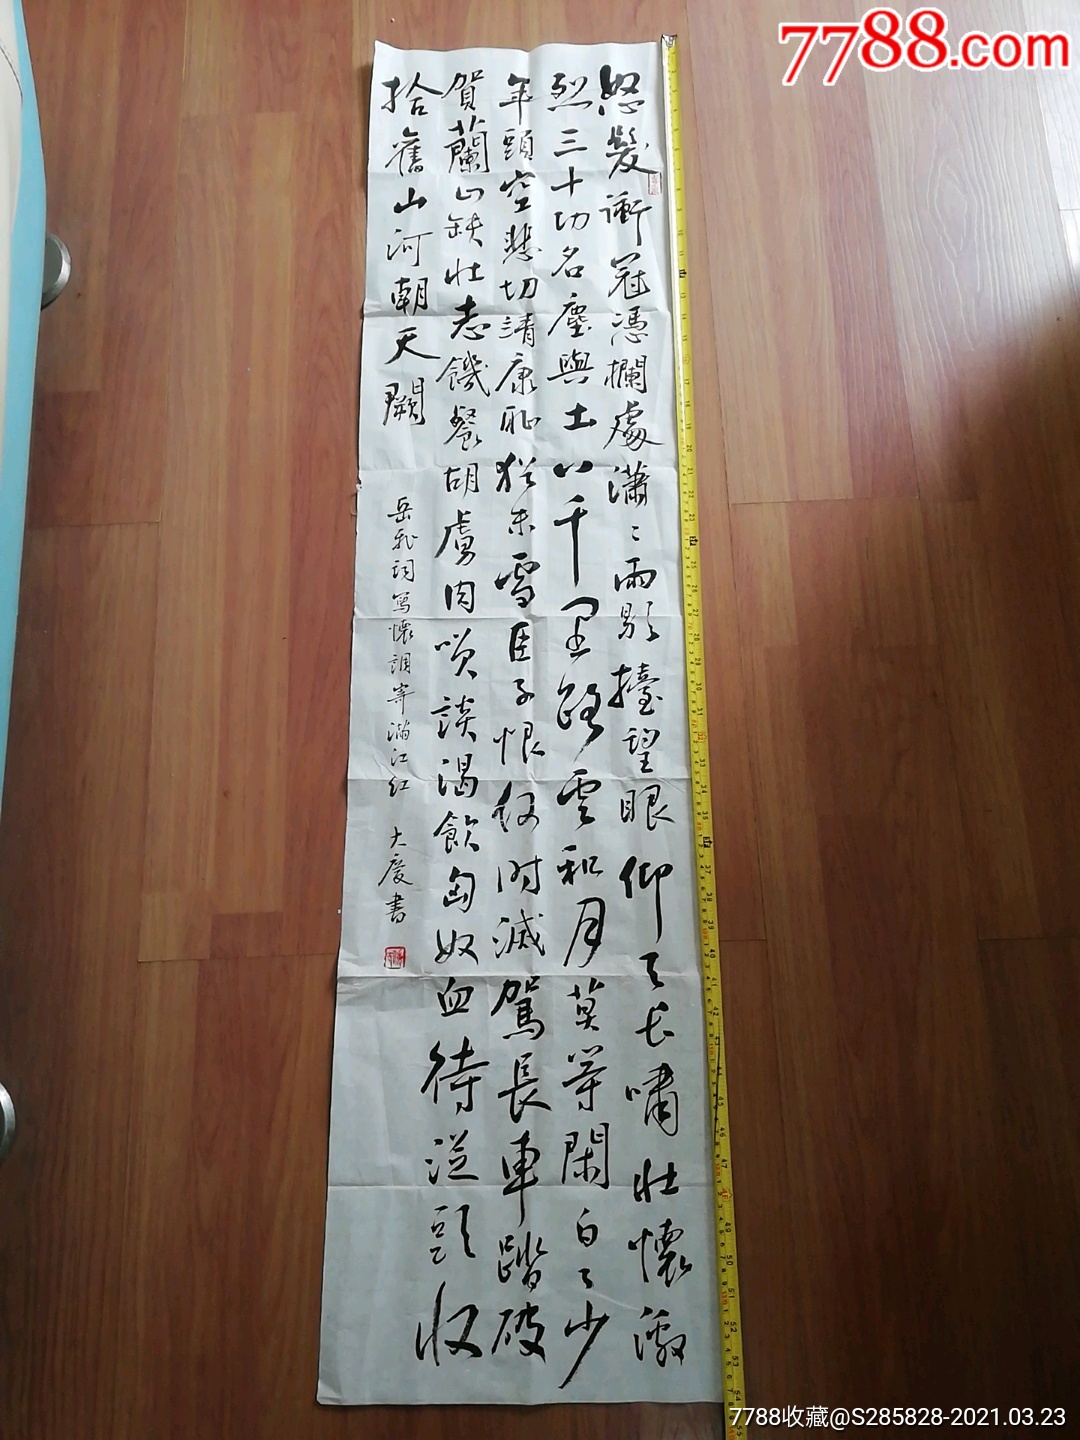 怒髮衝冠憑欄處瀟〻雨歇擡望眼仰天長嘯壯懷激
烈三十功名塵與土八千里路雲和月莫等閑白了少
年頭空悲切靖康恥猶未雪臣子恨何時滅駕長車踏破
賀蘭山缺壯志饑餐胡虜肉笑談渴飲匈奴血待從頭收
拾舊山河朝天闕
岳飛詞寫懷調寄滿江紅 大慶書
7788.com
7788收藏@S285828-2021.03.23